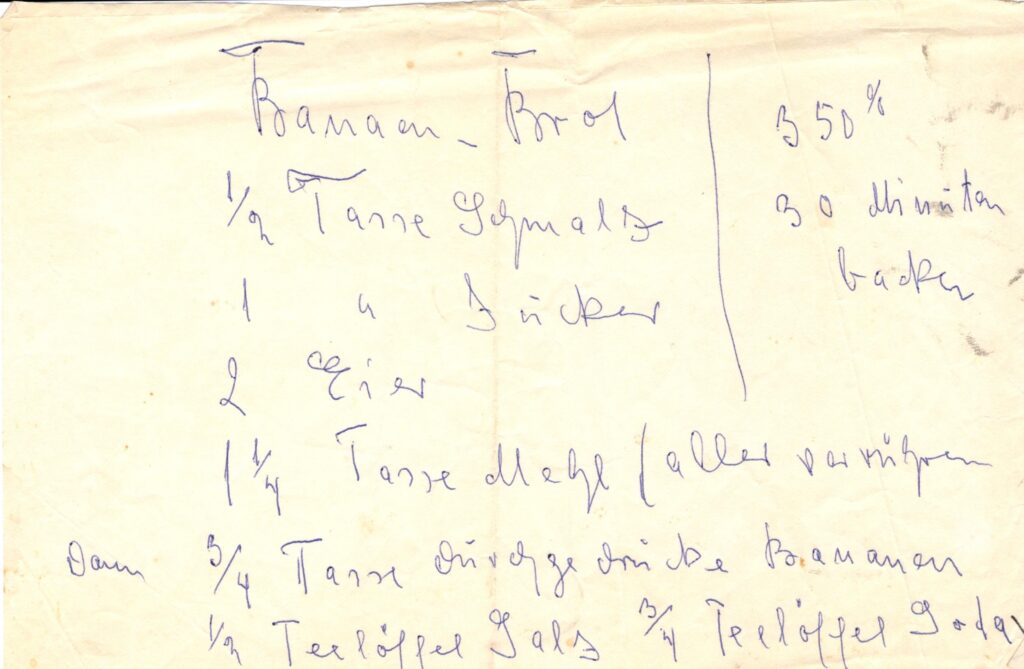 Banaen-Brot
1/2 Tasse Schmalz
1 " Zucker
2 Eier
1 1/4 Tasse Mehl / alles verrühren
Dann 3/4 Tasse durchgedrückte Bananen
1/2 Teelöffel Salz 3/4 Teelöffel Soda
350%
30 Minuten
backen